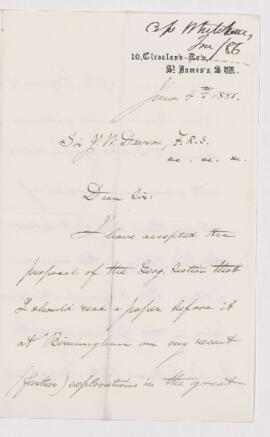 Cope Whitehouse,
Jun/86
10, Cleveland Row,
St. James's, S.W.
June 4th 1886.
Sir J. W. Dawson, F.R.S.
&c. &c. &c.
Dear Sir:
I have accepted the
proposal of the Geog. Section that
I should read a paper before it
at Birmingham on my recent
(further) explorations in the great